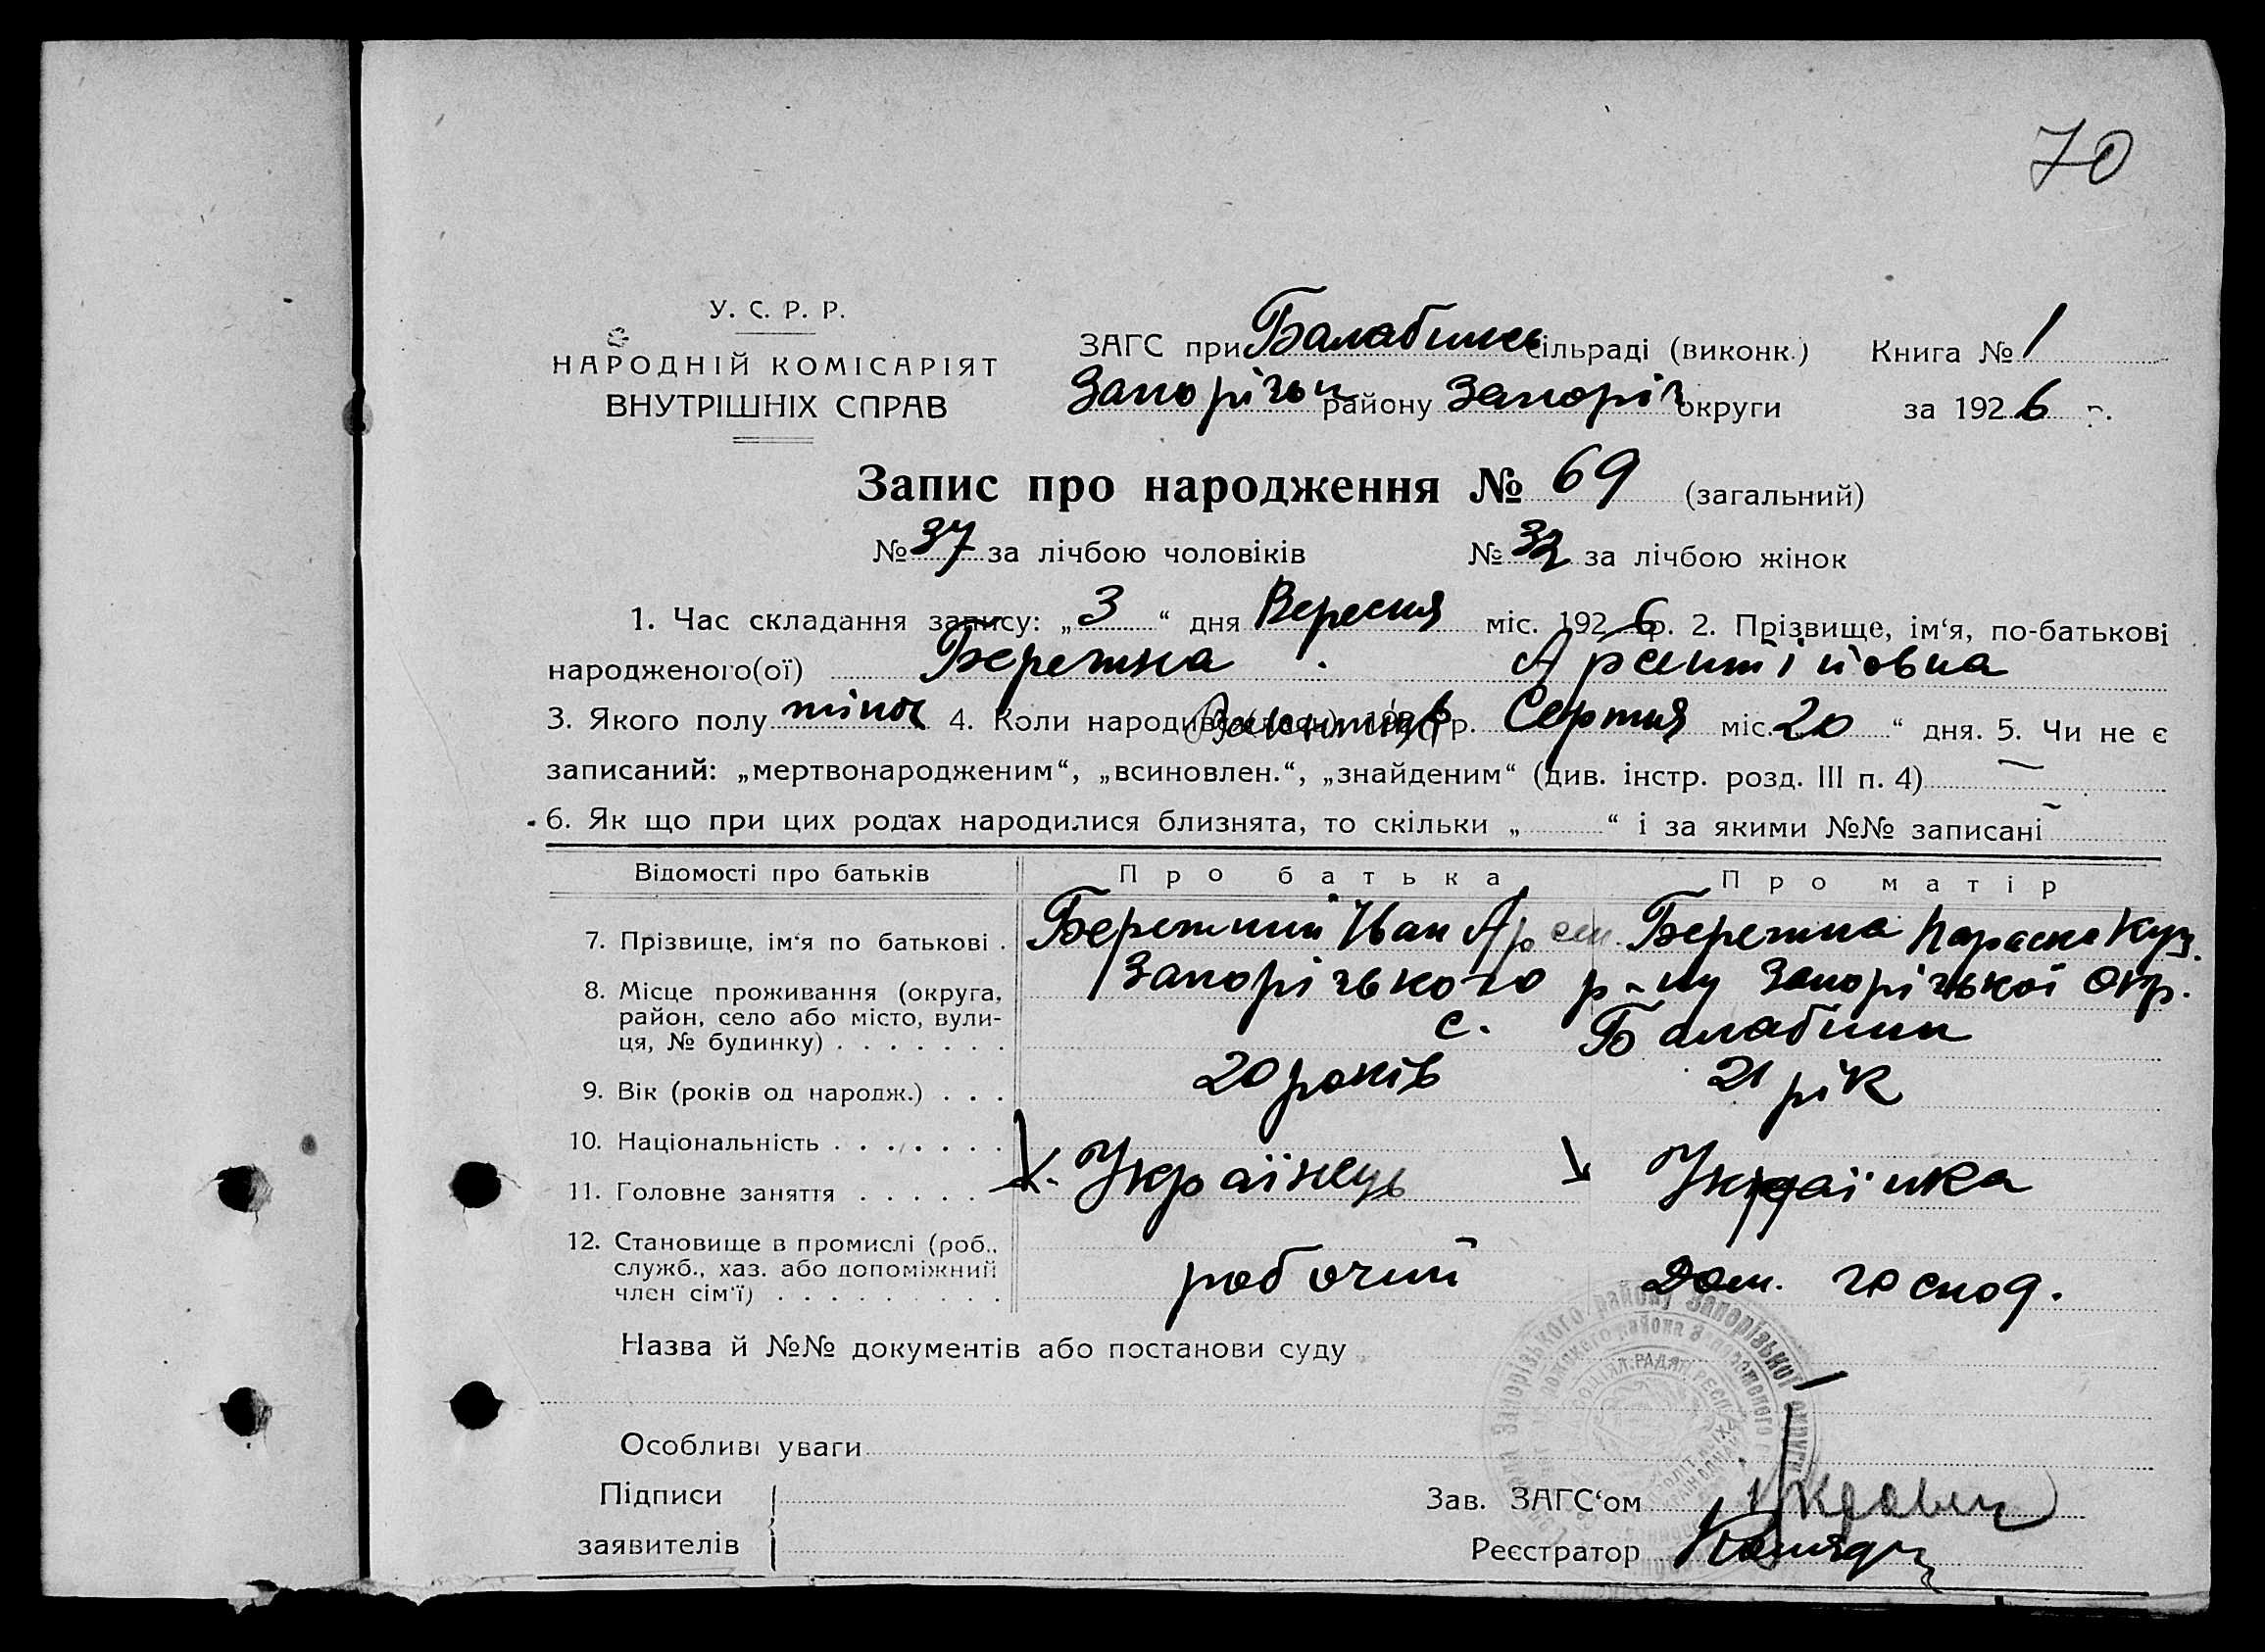 70
У. С. Р. Р.
НАРОДНІЙ КОМІСАРІЯТ
ВНУТРІШНІХ СПРАВ
ЗАГС при Балабинськ сільраді (виконк.) Книга № 1
Запорізьк району Запоріз округи за 1926 р.
Запис про народження № 69 (загальний)
№ 37 за лічбою чоловіків № 32 за лічбою жінок
1. Час складання запису: „ 3 “ дня Вересня міс. 1926 р. 2. Прізвище, ім‘я, по-батькові
народженого(ої) Бережна Арсентіївна
3. Якого полу жіноч 4. Коли народився(лась) р. Серпня міс. 20 “ дня. 5. Чи не є
записаний: „мертвонародженим“, „всиновлен.“, „знайденим“ (див. інстр. розд. III п. 4)
6. Як що при цих родах народилися близнята, то скільки „ “ і за якими №№ записані
Відомості про батьків Про батька Про матір
7. Прізвище, ім‘я по батькові . Бережний Іван Арсен. Бережна Параска Куз.
8. Місце проживання (округа, Запорізького р-ну Запорізької Окр.
район, село або місто, вули-
ця, № будинку) . . . . . . . с. Балабини
9. Вік (років од народж.) . . . 20 років 21 рік
10. Національність . . . . . . .
11. Головне заняття . . . . . Українець Українка
12. Становище в промислі (роб.,
служб., хаз. або допоміжний робочий Дом. господ.
член сім‘ї) . . . . . . . . .
Назва й №№ документів або постанови суду
Особливі уваги
Підписи
заявителів
Зав. ЗАГС‘ом
Реєстратор